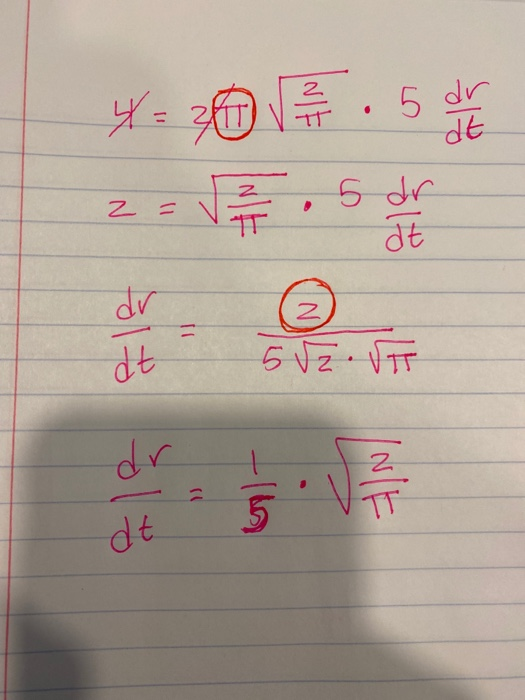 4 = 2π √(2/π) · 5 dr/dt
2 = √(2/π) · 5 dr/dt
dr/dt = 2/(5√2 · √π)
dr/dt = 1/5 · √(2/π)